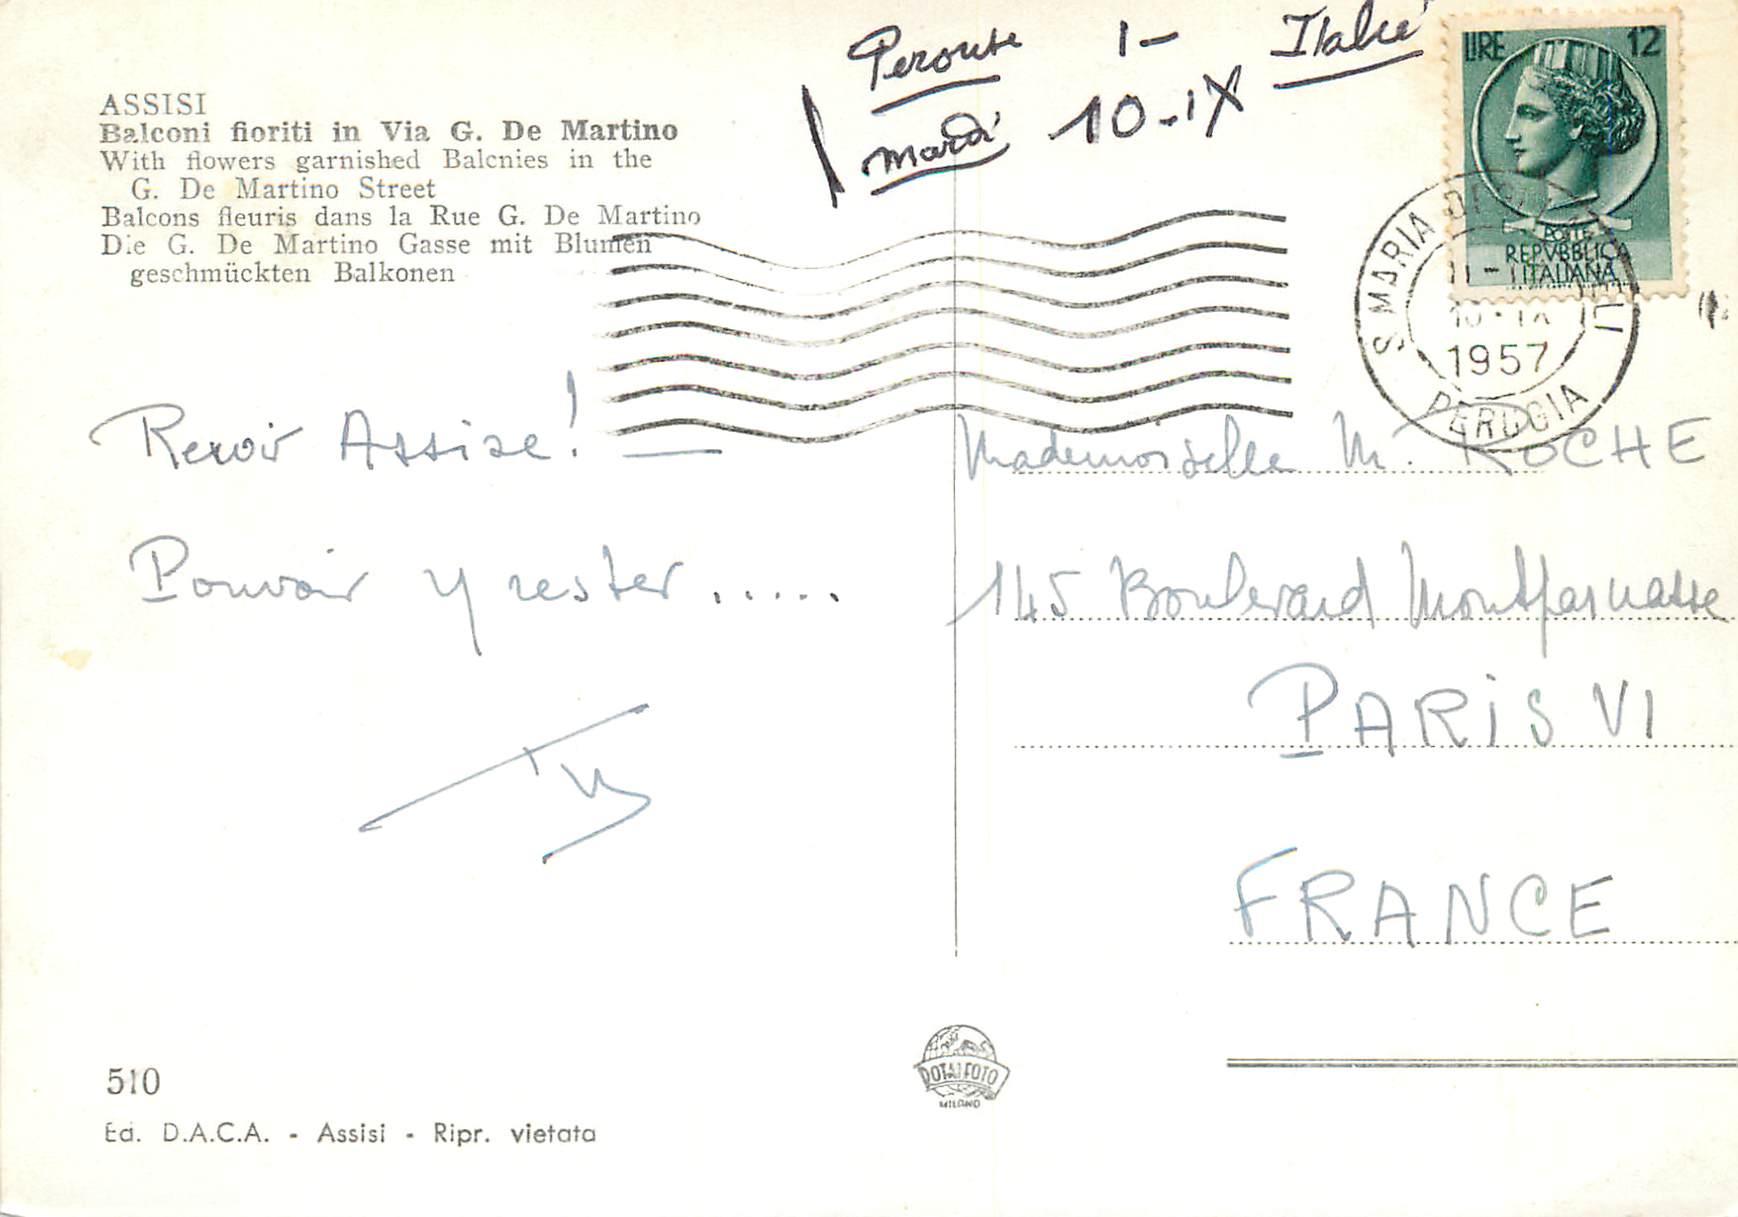 Perouse 1- Italie
mardi 10-IX
ASSISI
Balconi fioriti in Via G. De Martino
With flowers garnished Balcnies in the
G. De Martino Street
Balcons fleuris dans la Rue G. De Martino
Die G. De Martino Gasse mit Blumen
geschmückten Balkonen
LIRE 12
POSTE
REPVBBLICA
ITALIANA
S. MARIA DEGLI
10·IX
1957
PERUGIA
Revoir Assise!
Pouvoir y rester.....
Mademoiselle M. ROCHE
145 Boulevard Montparnasse
PARIS VI
FRANCE
510
Ed. D.A.C.A. - Assisi - Ripr. vietata
ROTALFOTO
MILANO